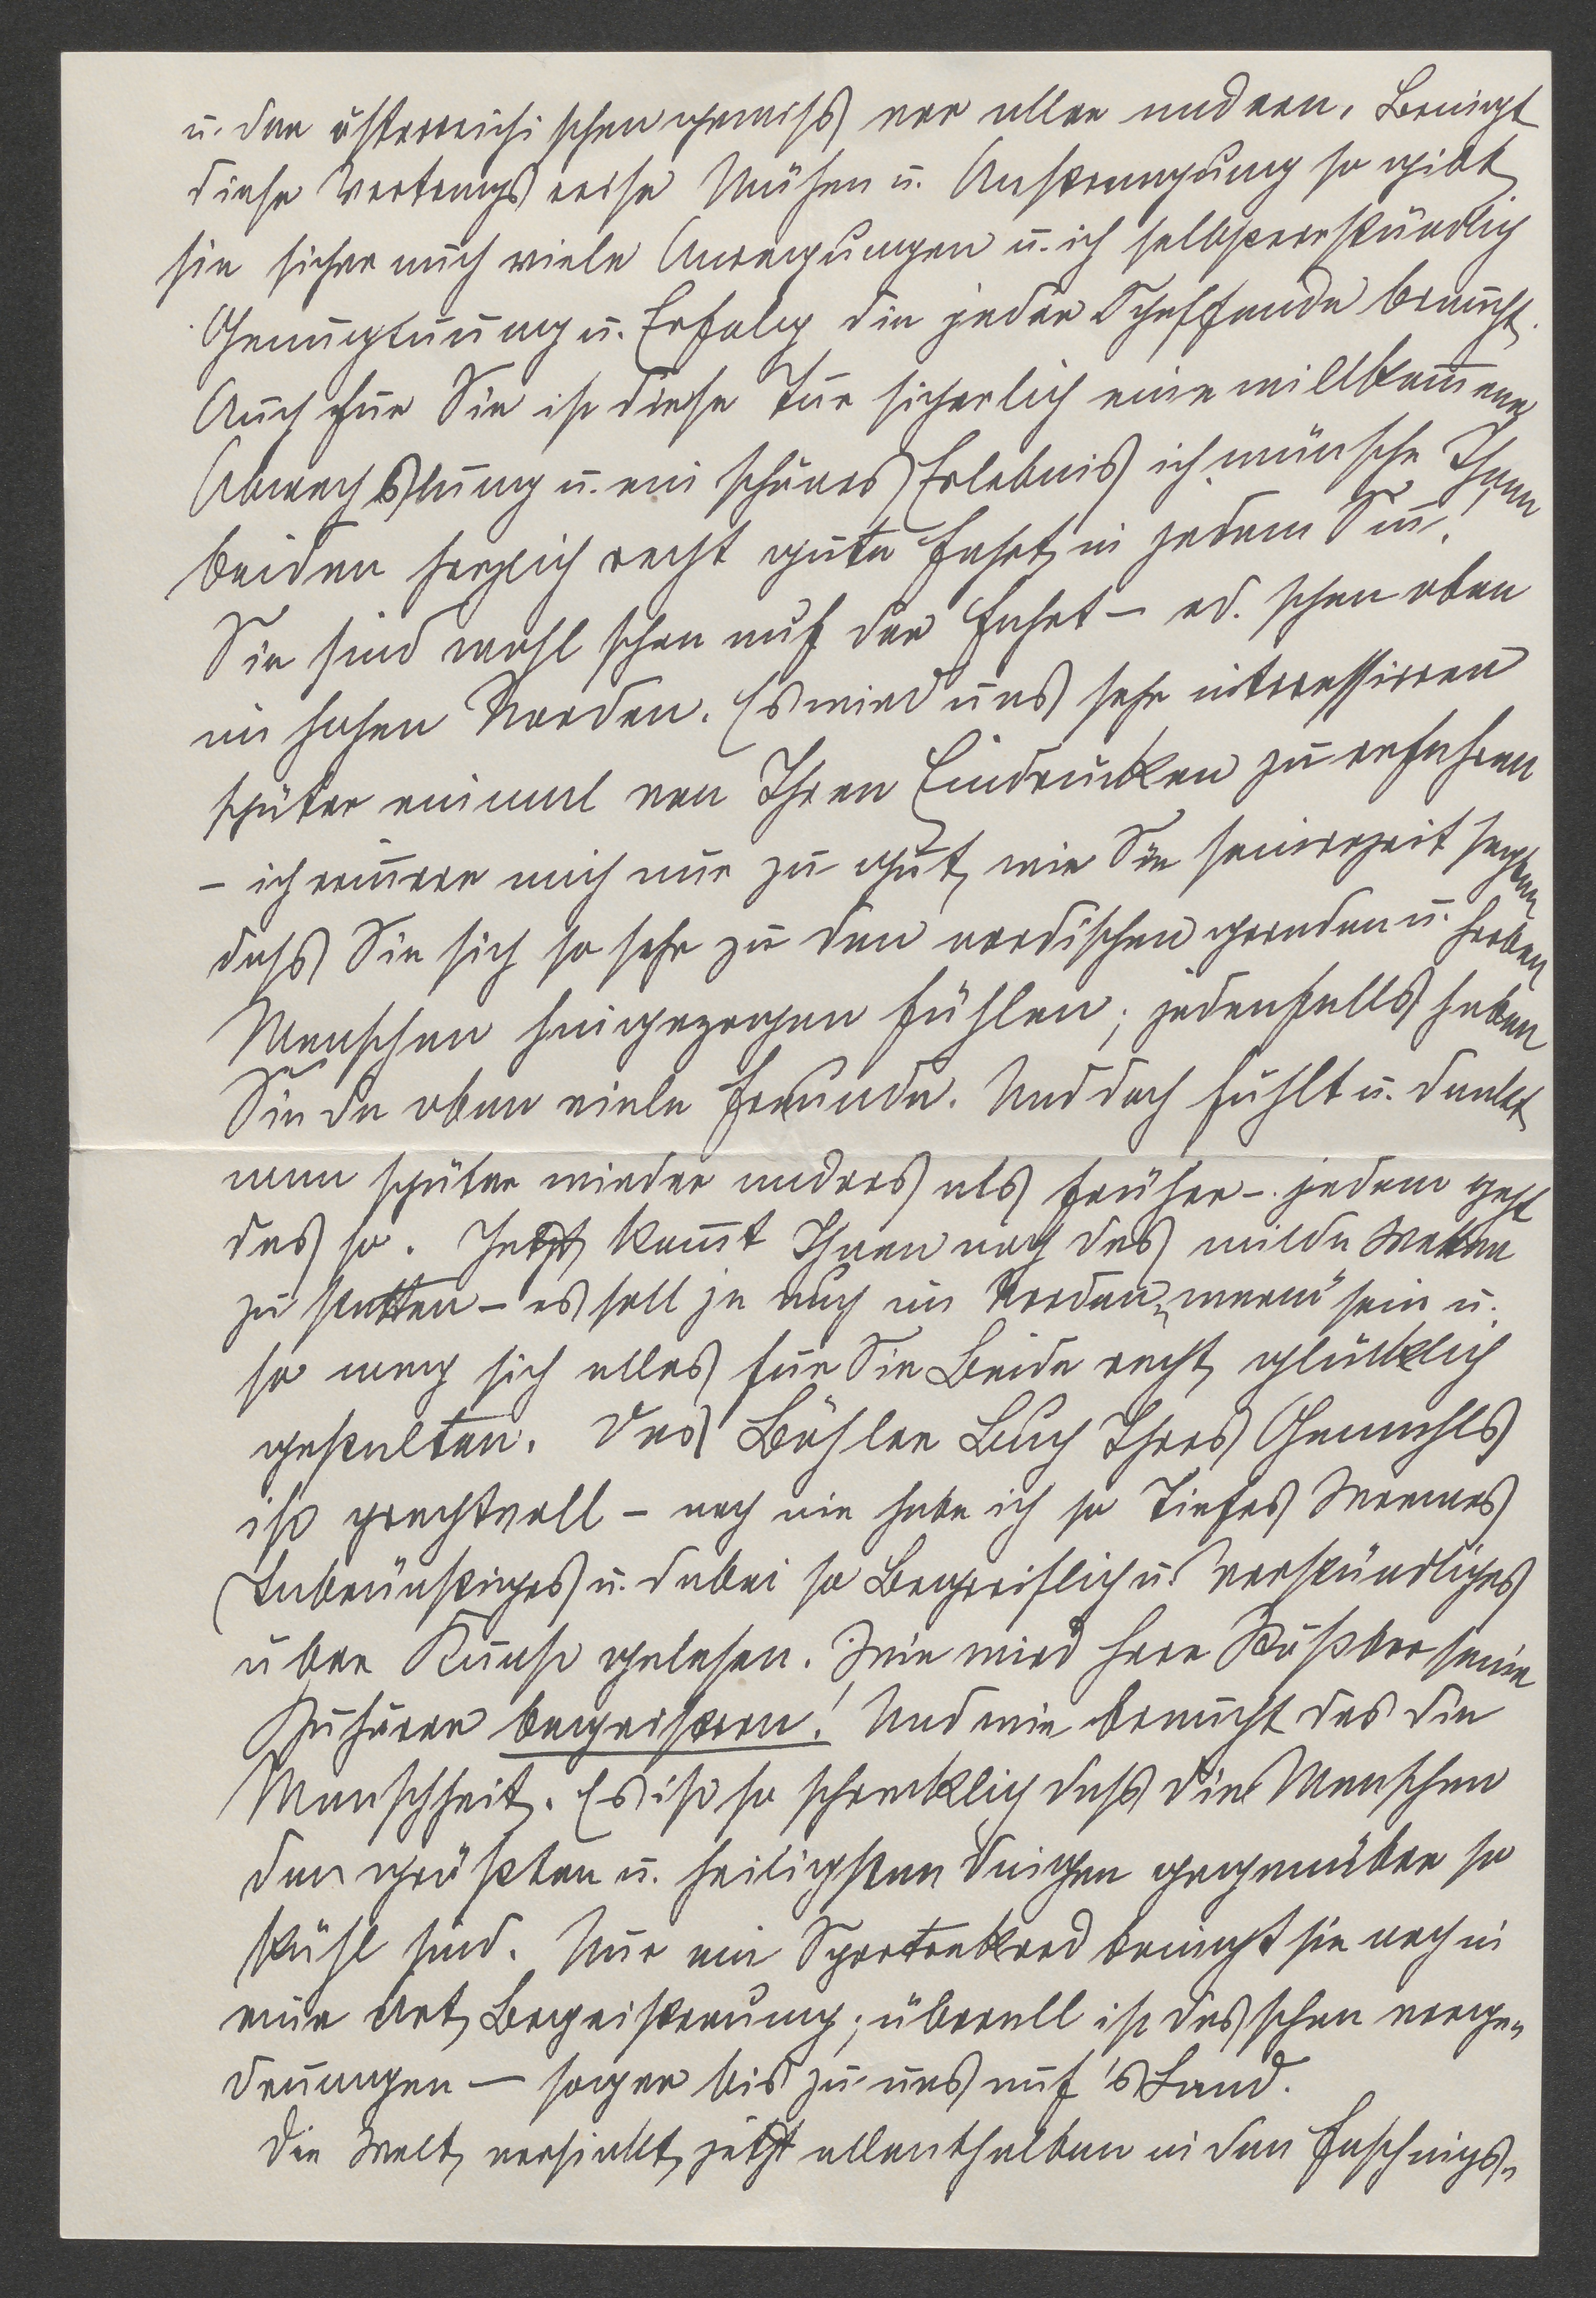 u. der österreichischen gewiss vor allen andern. Bringt
diese Vortragsreise Mühen u. Anstrengung so gibt
sie sicher auch viele Anregungen u. ich selbstverständlich
Genugtuung u. Erfolg die jeder Schaffende braucht.
Auch für Sie ist diese Tur sicherlich eine willkom̅ene
Abwechslung u. ein schönes Erlebnis ich wünsche Ihnen
beiden herzlich recht gute Fahrt, in jedem Sin̅!
Sie sind wohl schon auf der Fahrt – od. schon oben
im hohen Norden. Es wird uns sehr interessieren
später einmal von Ihren Eindrücken zu erfahren
– ich erin̅ere mich nur zu gut, wie Sie seinerzeit sagten,
dass Sie sich so sehr zu den nordischen geraden u. herben
Menschen hingezogen fühlen; jedenfalls haben
Sie da oben viele Freunde. Und doch fühlt u. denkt
man später wieder anders als früher –. jedem geht
das so. Jetzt kom̅t Ihnen noch das milde Wetter
zu statten – es soll ja auch im Norden „warm“ sein u.
so mag sich alles für Sie Beide recht glücklich
gestalten. Das Böhler Buch Ihres Gemahls
ist prachtvoll – noch nie habe ich so Tiefes Warmes
Inbrünstiges u. dabei so Begreiflich u. Verständliches
über Kunst gelesen. Wie wird Herr Köster seine
Zuhörer begeistern! Und wie braucht das die
Menschheit. Es ist so schrecklich dass die Menschen
den größten u. heiligsten Dingen gegenüber so
kühl sind. Nur ein Sportrekord bringt sie noch in
eine Art Begeisterung; überall ist das schon vorge-
drungen – sogar bis zu uns auf's Land.
Die Welt versinkt jetzt allenthalben in den Faschings-